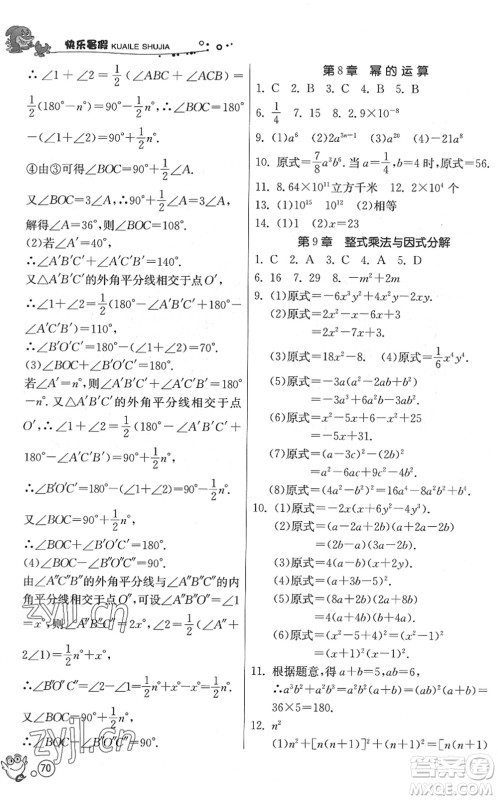 快乐暑假 KUAILE SHUJIA
∴∠1+∠2=1/2(∠ABC+∠ACB)=
1/2(180°-n°)=90°-1/2n°,
∴∠BOC=180°-(∠1+∠2)=90°+
1/2n°.
④由③可得∠BOC=90°+1/2∠A.
又∵∠BOC=3∠A,∴90°+1/2∠A=3∠A,
解得∠A=36°,则∠BOC=108°.
(2)若∠A′=40°,
则∠A′B′C′+∠A′C′B′=140°,
又△A′B′C′的外角平分线相交于点O′,
∴∠1+∠2=1/2(180°-∠A′B′C′+180°
-∠A′C′B′)=110°,
∴∠B′O′C′=180°-(∠1+∠2)=70°.
(3)∠BOC+∠B′O′C′=180°.
若∠A′=n°,则∠A′B′C′+∠A′C′B′=180°
-n°.又△A′B′C′的外角平分线相交于点
O′,∴∠1+∠2=1/2(180°-∠A′B′C′+
180°-∠A′C′B′)=90°+1/2n°,
∴∠B′O′C′=180°-(∠1+∠2)=90°-
1/2n°.
又∵∠BOC=90°+1/2n°,
∴∠BOC+∠B′O′C′=180°.
(4)∠BOC-∠B″O″C″=90°.
由∠A″C″B″的外角平分线与∠A″B″C″的内
角平分线相交于点O″,可设∠A″B″C″=2∠
1=x°,则∠A″C″B″=180°-(∠A″+
2∠1)=
∴∠B″O″C″=
又∵∠BOC=90°+1/2n°,
∴∠BOC-∠B″O″C″=90°.
70
第8章 幂的运算
1. C 2. B 3. C 4. B 5. B
6. 1/4 7. 15 8. 2.9×10⁻⁸
9. (1)a⁶ (2)2a³ⁿ⁻¹ (3)a²⁰ (4)-2a⁹
10. 原式=7/8a³b⁶.当a=1/4,b=4时,原式=56.
11. 8.64×10¹¹立方千米 12. 2×10⁶
13. (1)10¹⁵ 10¹⁵ (2)相等
14. (1)1 (2)x=23
第9章 整式乘法与因式分解
1. C 2. A 3. C 4. D 5. D
6. 16 7. 29 8. -m²+2m
9. (1)原式=-6x³y²+4x²y-2xy.
(2)原式=-6x²+2x-3x+1+4x²-x+2
=-2x²-2x+3.
(3)原式=18x²-8. (4)原式=1/6x⁴y⁴.
(5)原式=-3a(a²-2ab+b²)
=-3a³+6a²b-3ab².
(6)原式=x²-10x+25-(x²-5x+6)
=-5x+31.
(7)原式=(a-3c)²-(2b)²
=a²-6ac+9c²-4b².
(8)原式=a⁴-2a²b²+b⁴.
10. (1)原式=-6xy(x²-2x+1)
=-6xy(x-1)².
(2)原式=(a-2+2b)(a-2-2b).
(3)原式=(x²-6+2)²=(x²-4)²
=(x+2)²(x-2)².
(4)原式=(a-2b)(x²-4y²)
=(a-2b)(x+2y)(x-2y).
(5)原式=(8a+2b)(2a+8b)
=4(4a+b)(a+4b).
(6)原式=(x²-1)²-(x²-1)²
=0.
11. 根据题意,得a+b=5,ab=6.
∴a³b²+a²b³=a²b²(a+b)=(ab)²(a+b)=
36×5=180.
12. n²